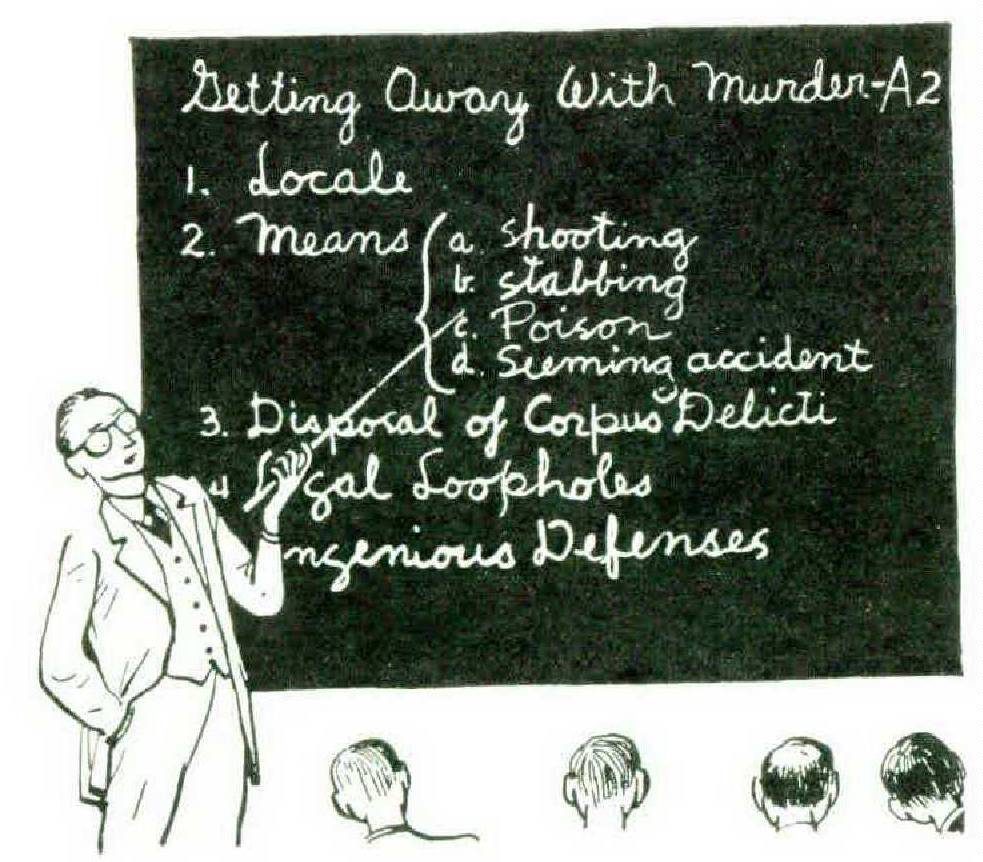 Getting Away With Murder-A2
1. Locale
2. Means { a. shooting
b. stabbing
c. Poison
d. Seeming accident
3. Disposal of Corpus Delicti
4 Legal Loopholes
ngenious Defenses